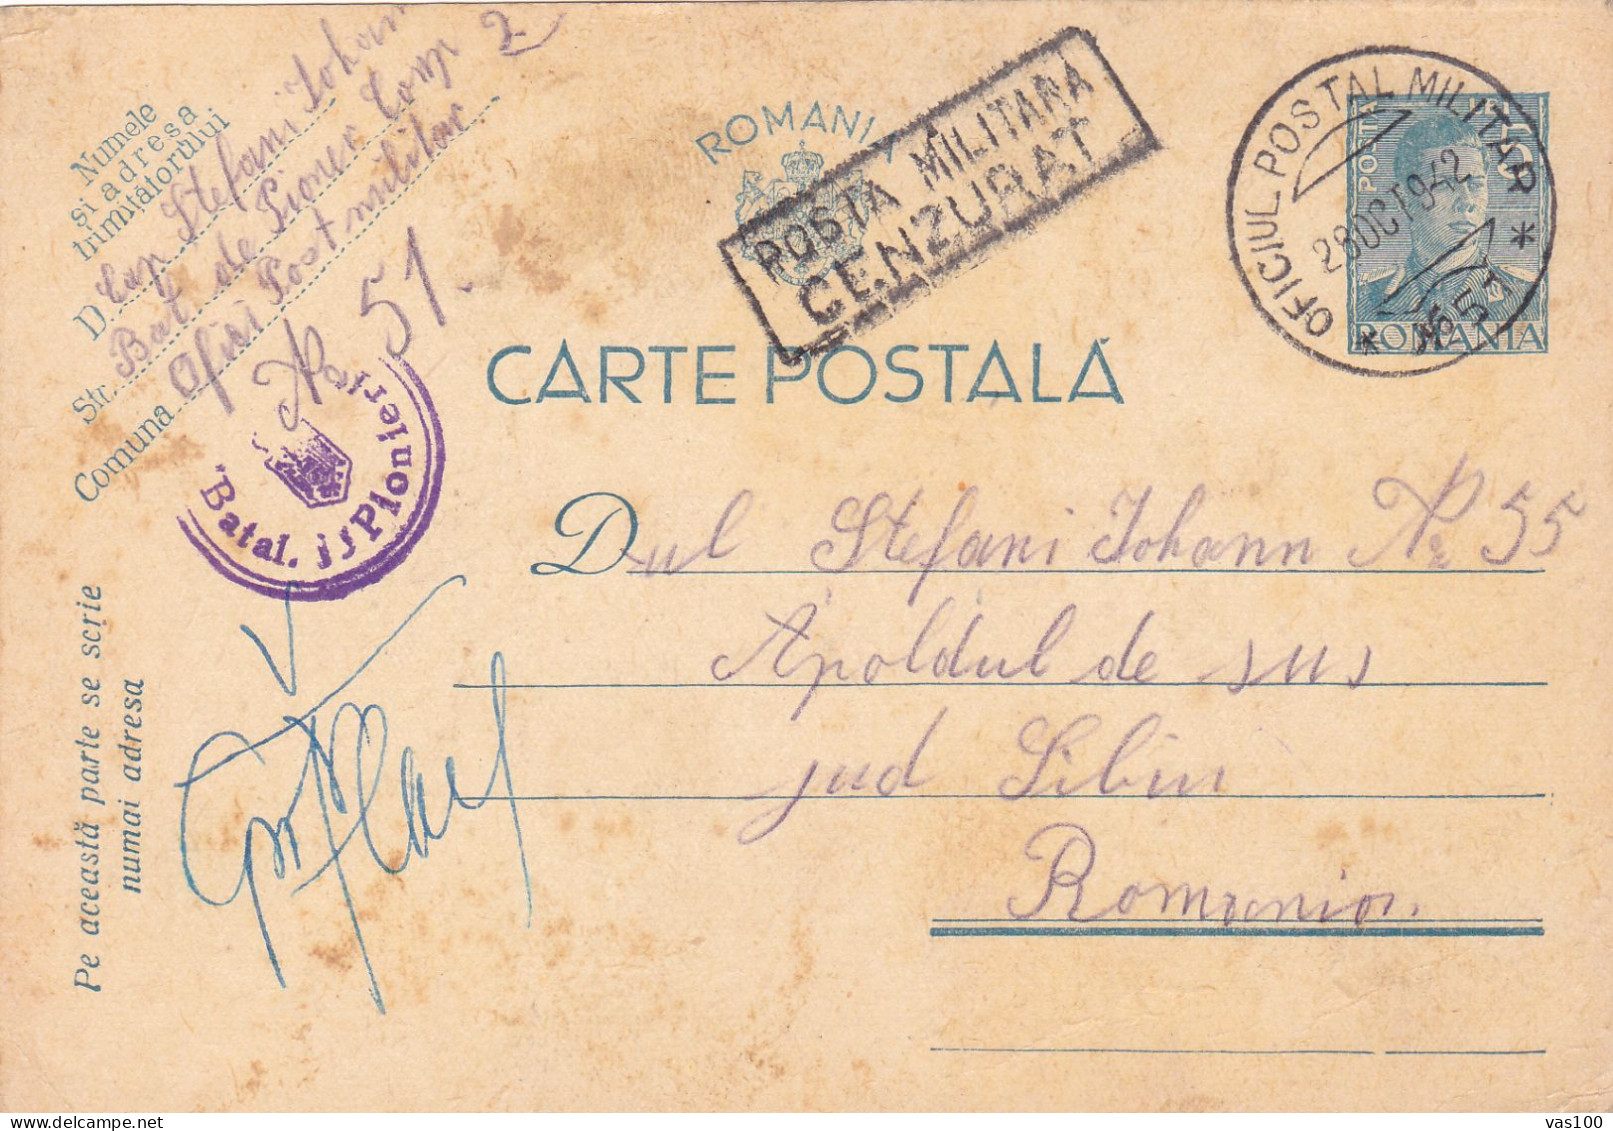 Numele
și adresa
trimițătorului
D. Cap Stefani Johann
Str. Bat. de Pioner Comp 2
Comuna Ofici Postmilitar
No 51.
Batal. Pionieri
ROMANIA
POSTA MILITARA
CENZURAT
OFICIUL POSTAL MILITAR
28 OCT 942
POSTA
ROMANIA
CARTE POSTALĂ
Dul Stefani Johann No 55
Apoldul de sus
jud Sibiu
Romania.
Pe această parte se scrie
numai adresa
vas100